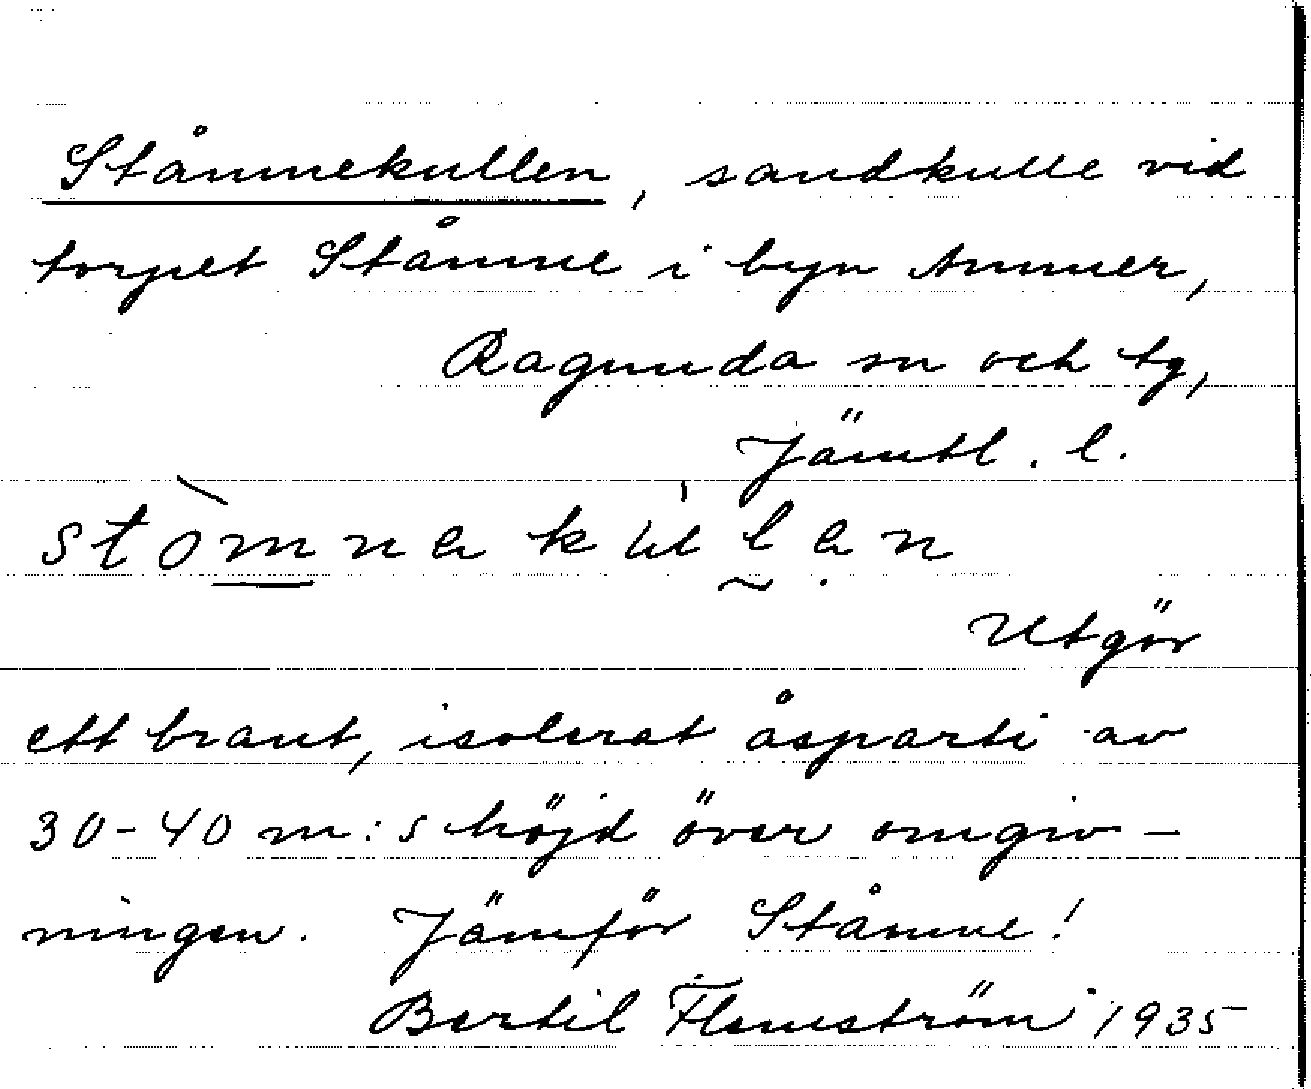 Ståmnekullen, sandkulle vid
torpet Ståmne i byn Ammer,
Ragunda sn och tg,
Jämtl. l.
stòmnakulạn
Utgör
ett brant, isolerat åsparti av
30-40 m:s höjd över omgiv-
ningen. Jämför Ståmne!
Bertil Flemström 1935